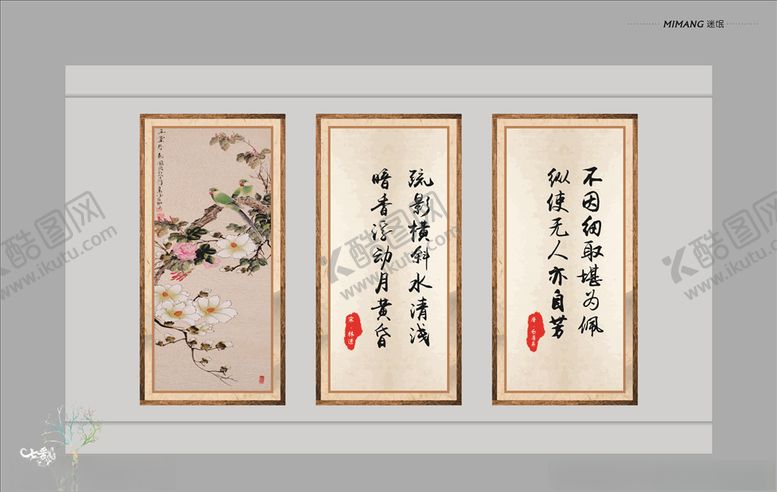 MIMANG 迷氓
疏影横斜水清浅
暗香浮动月黄昏
宋·林逋
不因纫取堪为佩
纵使无人亦自芳
酷图网
www.ikutu.com
酷图网
www.ikutu.com
酷图网
www.ikutu.com